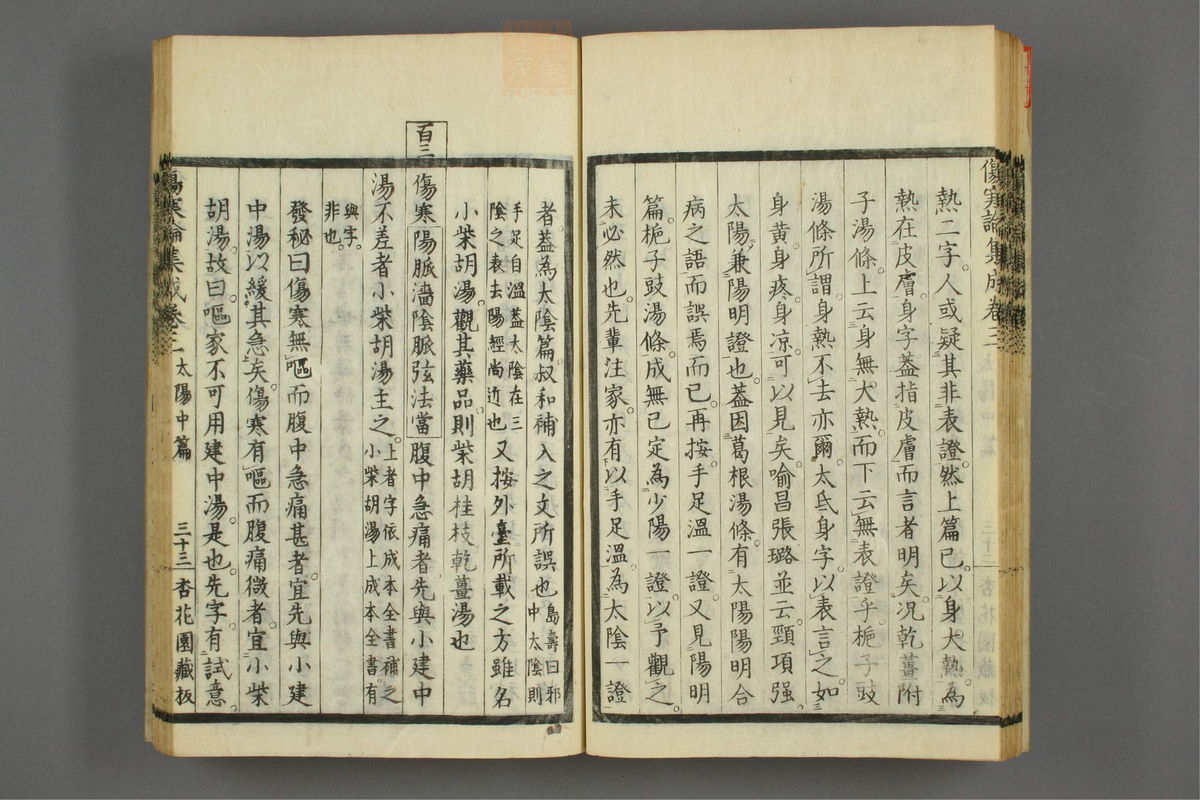 傷寒論集成卷三
熱二字人或疑其非表證然上篇已以身大熱為
熱在皮膚身字蓋指皮膚而言者明矣況乾薑附
子湯條上云身無大熱而下云無表證乎梔子豉
湯條所謂身熱不去亦爾太氐身字以表言之如
身黄身疼身凉可以見矣喻昌張璐並云頸項强
太陽兼陽明證也蓋因葛根湯條有太陽陽明合
病之語而誤焉而已再按手足溫一證又見陽明
篇梔子豉湯條成無已定為少陽一證以予觀之
未必然也先輩注家亦有以手足溫為太陰一證
者蓋為太陰篇叔和補入之文所誤也島壽曰邪中太陰則
手足自溫蓋太陰在三陰之表去陽經尚近也又按外臺所載之方雖名
小柴胡湯觀其藥品則柴胡桂枝乾薑湯也
百三
傷寒陽脈濇陰脈弦法當腹中急痛者先與小建中
湯不差者小柴胡湯主之上者字依成本全書補之小柴胡湯上成本全書有
與字非也
發秘曰傷寒無嘔而腹中急痛甚者宜先與小建
中湯以緩其急矣傷寒有嘔而腹痛微者宜小柴
胡湯故曰嘔家不可用建中湯是也先字有試意
傷寒論集成卷三 太陽中篇 三十三 杏花園藏板